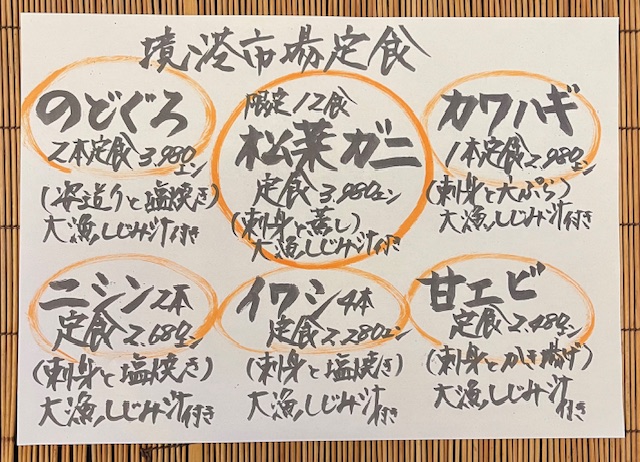 境港市場定食
のどぐろ
2本定食3,980エン
(姿造りと塩焼き)
大漁しじみ汁付き
限定12食
松葉ガニ
定食3,980エン
(刺身と蒸し)
大漁しじみ汁付き
カワハギ
1本定食2,980エン
(刺身と天ぷら)
大漁しじみ汁付き
ニシン2本
定食2,680エン
(刺身と塩焼き)
大漁しじみ汁付き
イワシ4本
定食2,280エン
(刺身と塩焼き)
大漁しじみ汁付き
甘エビ
定食2,480エン
(刺身とかき揚げ)
大漁しじみ汁付き